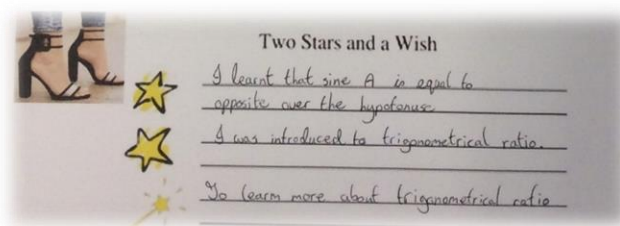 Two Stars and a Wish
I learnt that sine A is equal to
opposite over the hypotenuse
I was introduced to trigonometrical ratio.
To learn more about trigonometrical ratio